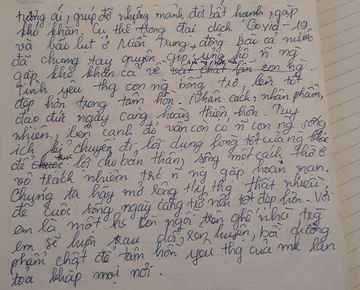 tương ái, giúp đỡ những mảnh đời bất hạnh, gặp
khó khăn. Cụ thể trong đại dịch Covid-19
và bão lụt ở Miền Trung, đồng bào cả nước
đã chung tay quyên góp ủng hộ n ng
gặp khó khăn cả về
Tình yêu thg con ng bỗng trở lên tốt
đẹp hơn trong tâm hồn. Nhân cách, nhân phẩm,
đạo đức ngày càng hoàn thiện hơn. Tuy
nhiên, bên cạnh đó vẫn còn có n con ng sống
ích kỉ chuyên đi lợi dụng lòng tốt của ng khác
để lợi cho bản thân, sống một cách thờ ơ
vô trách nhiệm trc n ng gặp hoạn nạn.
Chúng ta hãy mở rộng thg thật nhiều
để cuộc sống ngày càng trở nên tốt đẹp hơn. Với
em là một hs còn ngồi trên ghế nhà trg
em sẽ luôn trau dồi, rèn luyện, bồi dưỡng
phẩm chất để tâm hồn yêu thg của mk lan
toả khắp mọi nơi.